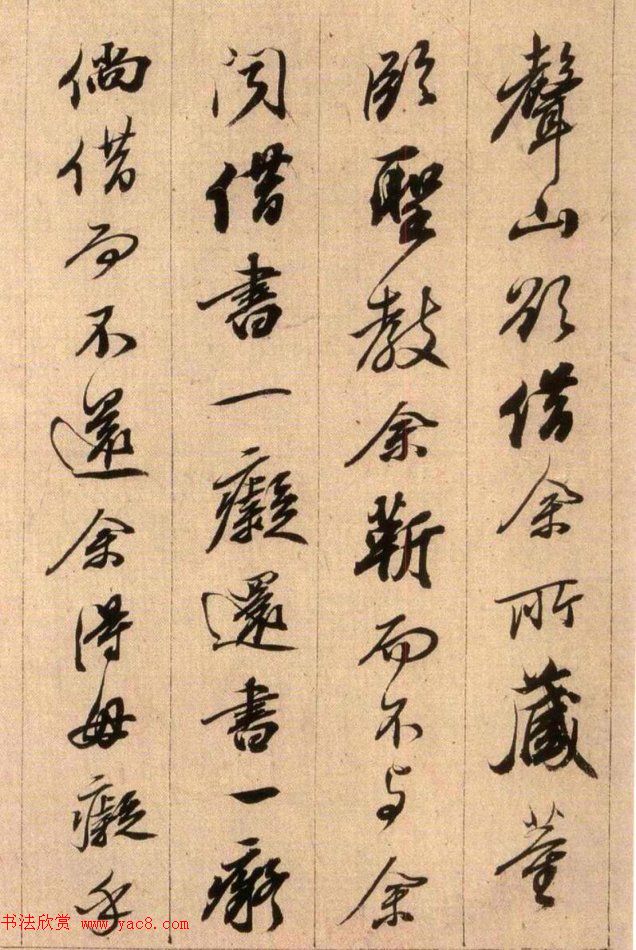 聲山欲借余所藏董
臨聖教余靳而不與余
閱借書一癡還書一癡
倘借而不還余得毋癡乎
书法欣赏 www.yac8.com